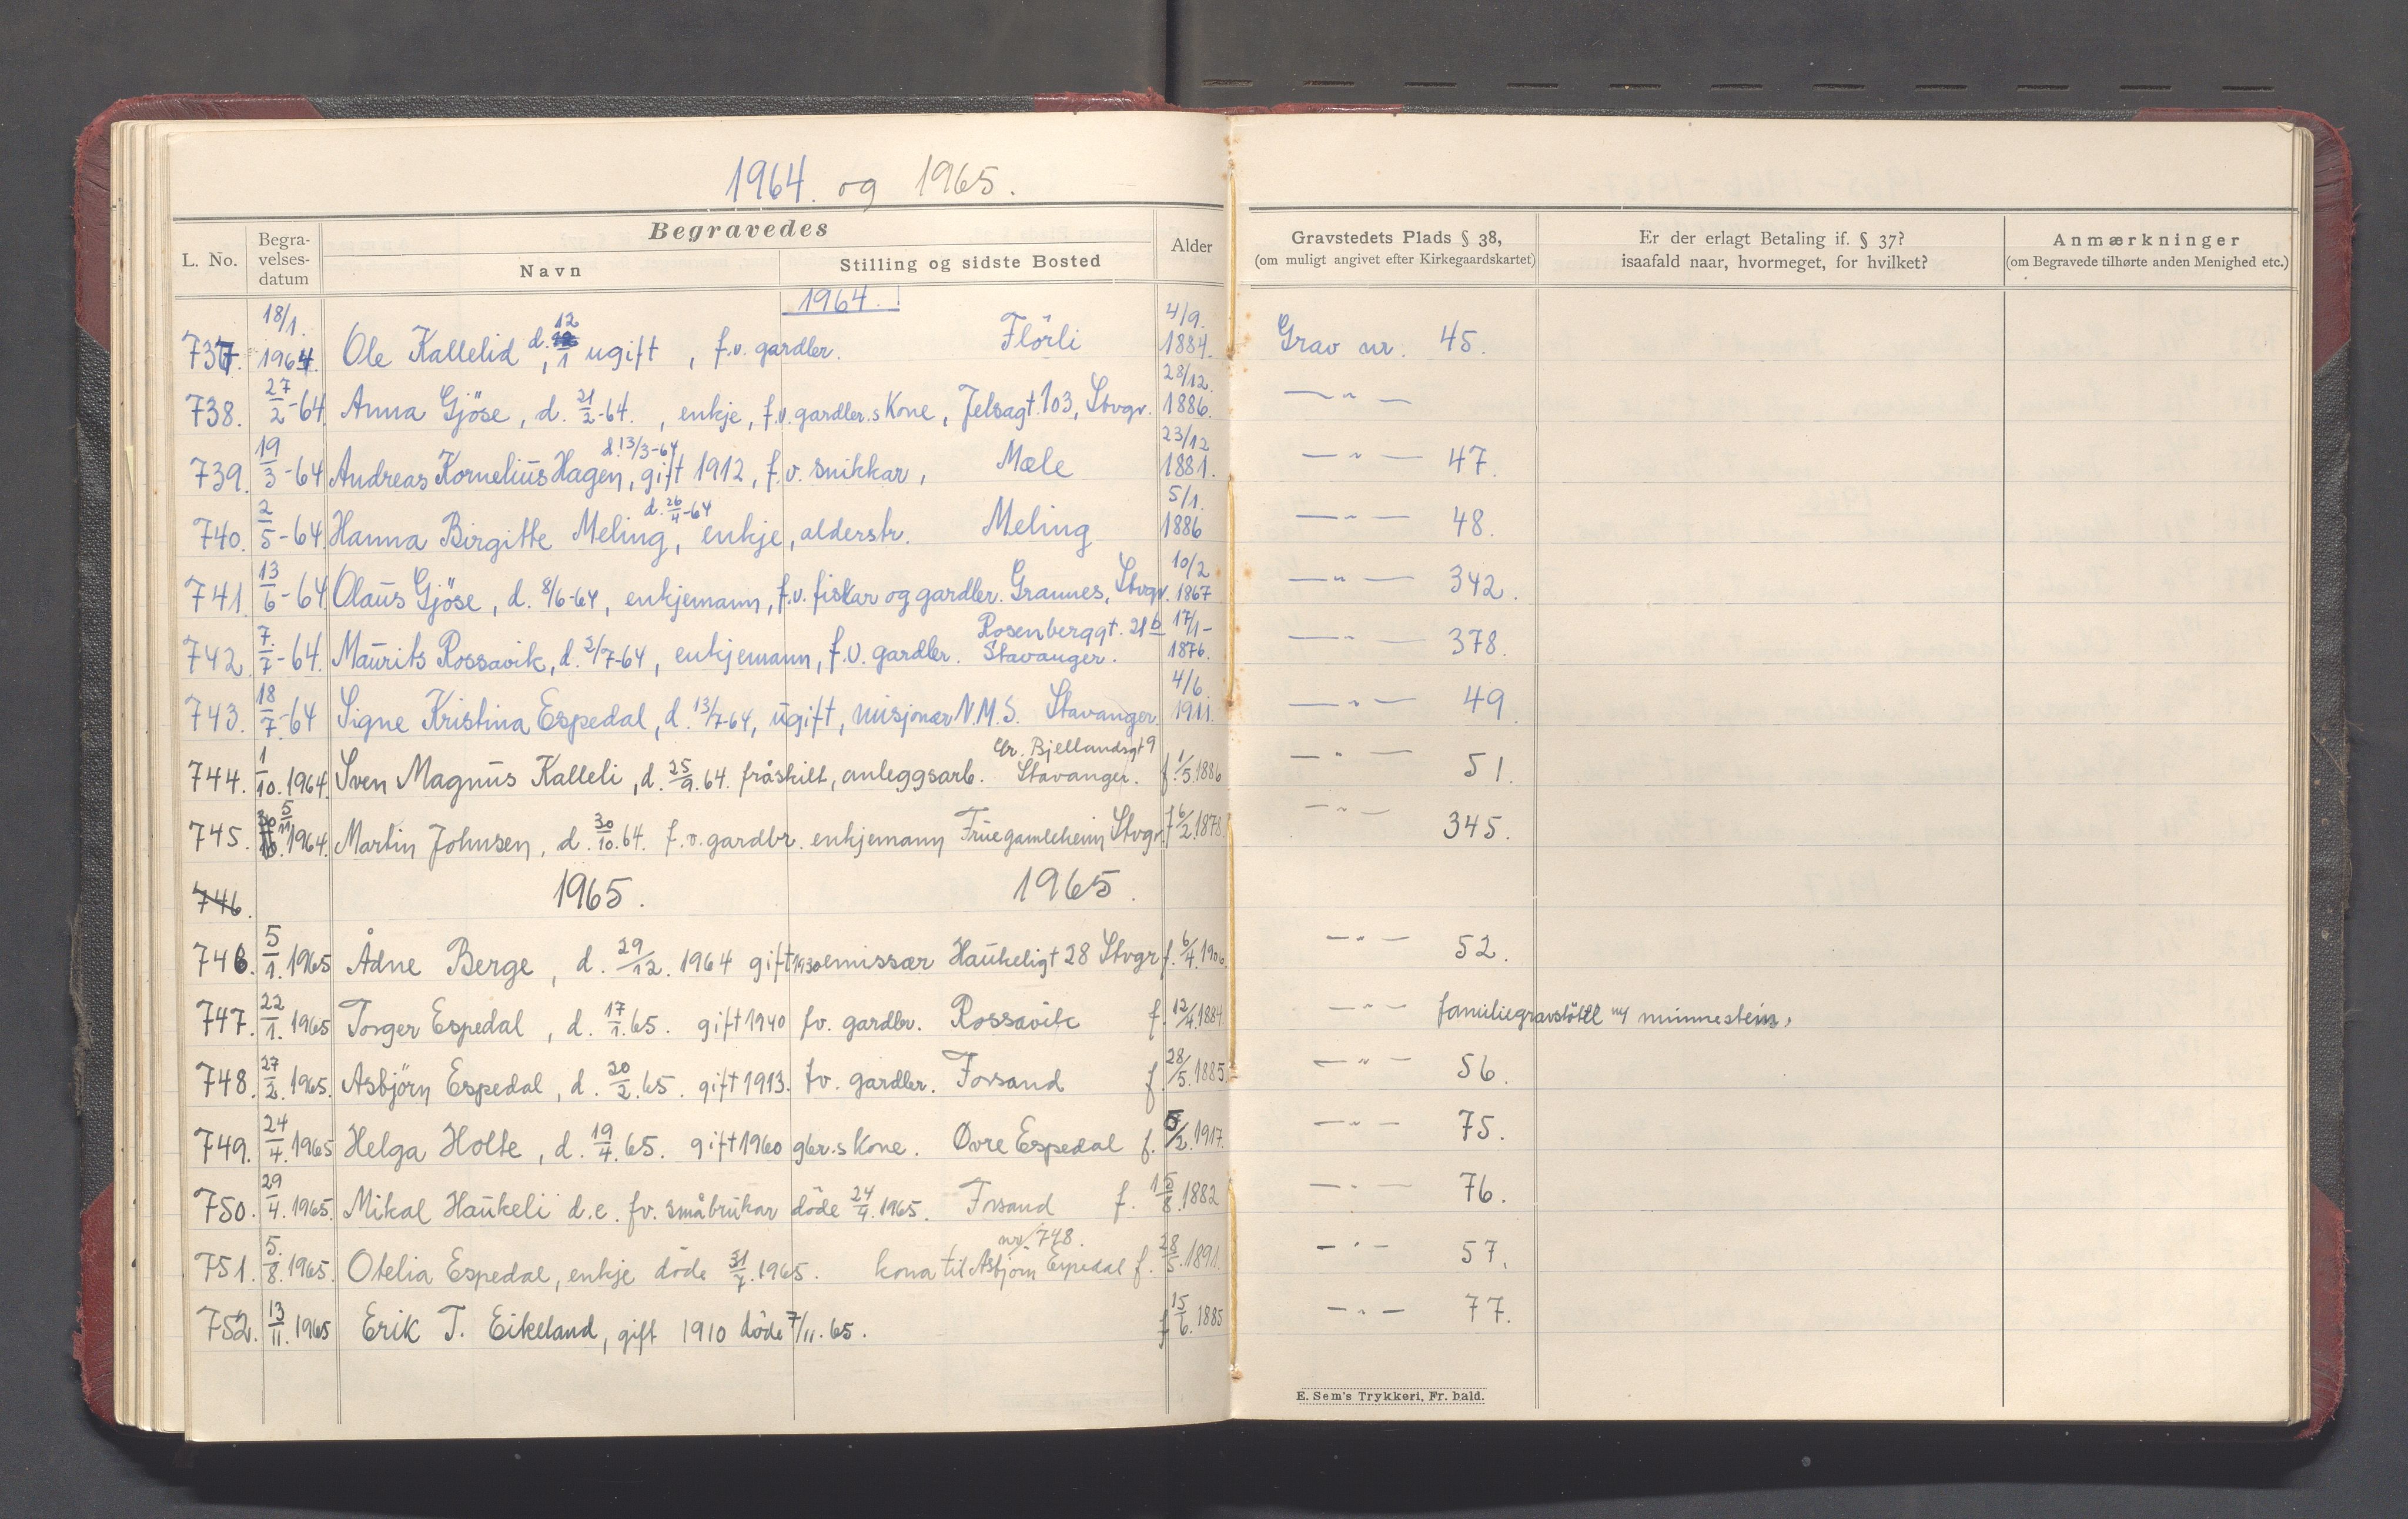 1964. og 1965.
L. No. Begravelses-datum Begravedes Alder Gravstedets Plads § 38, Er der erlagt Betaling if. § 37? Anmærkninger
Navn Stilling og sidste Bosted (om muligt angivet efter Kirkegaardskartet) isaafald naar, hvormeget, for hvilket? (om Begravede tilhørte anden Menighed etc.)
1964.
737. 18/1. 1964. Ole Kallelid, d. 12/1 ugift, f.v. gardbr. Flörli 4/9. 1884. Grav nr. 45.
738. 27/2-64. Anna Gjöse, d. 21/2-64., enkje, f.v. gardbr.s Kone, Jelsagt. 103, Stvgr. 28/12. 1886. — " —
739. 19/3-64 Andreas Kornelius Hagen, d. 13/3-64 gift 1912, f.v. snikkar, Mæle 23/12 1881. — " — 47.
740. 2/5-64. Hanna Birgitte Meling, d. 26/4-64 enkje, alderstr. Meling 5/1. 1886 — " — 48.
741. 13/6-64 Olaus Gjöse, d. 8/6-64, enkjemann, f.v. fiskar og gardbr. Grannes, Stvgr. 10/2 1867 — " — 342.
742. 7./7-64. Maurits Rossavik, d. 2/7-64, enkjemann, f.v. gardbr. Rosenberggt. 21b Stavanger. 17/1- 1876. — " — 378.
743. 18/7-64 Signe Kristina Espedal, d. 13/7-64, ugift, misjonær N.M.S. Stavanger. 4/6. 1911. — " — 49.
744. 1/10. 1964. Sven Magnus Kalleli, d. 25/9. 64. fråskilt, anleggsarb. Chr. Bjellandsgt 9 Stavanger. f. 1/5. 1886 — " — 51.
745. 5/11 1964. Martin Johnsen, d. 30/10. 64. f.v. gardbr. enkjemann Fruegamleheim Stvgr. f 6/2. 1878 — " — 345.
746. 1965. 1965.
746. 5/1. 1965 Ådne Berge, d. 29/12. 1964 gift 1930 emissær Haukeligt 28 Stvgr f. 6/4. 1906. — " — 52.
747. 22/1. 1965 Torger Espedal, d. 17/1. 65. gift 1940 fv. gardbr. Rossavik f. 12/4. 1884. — " — familiegravstötte m/ minnestein.
748. 27/2. 1965. Asbjörn Espedal, d. 20/2. 65. gift 1913. fv. gardbr. Forsand f. 28/5. 1885. — " — 56.
749. 24/4. 1965 Helga Holte, d. 19/4. 65. gift 1960 gbr.s Kone. Øvre Espedal f. 5/2. 1917. — " — 75.
750. 29/4. 1965. Mikal Haukeli d.e. fv. småbrukar döde 24/4. 1965. Forsand f. 15/8. 1882 — " — 76.
751. 5./8. 1965. Otelia Espedal, enkje döde 31/7. 1965. kona til Asbjörn Espedal nr/748. f. 28/5. 1891. — " — 57.
752. 13/11. 1965 Erik T. Eikeland, gift 1910 döde 7/11. 65. f. 15/6. 1885 — " — 77.
E. Sem's Trykkeri, Fr. hald.